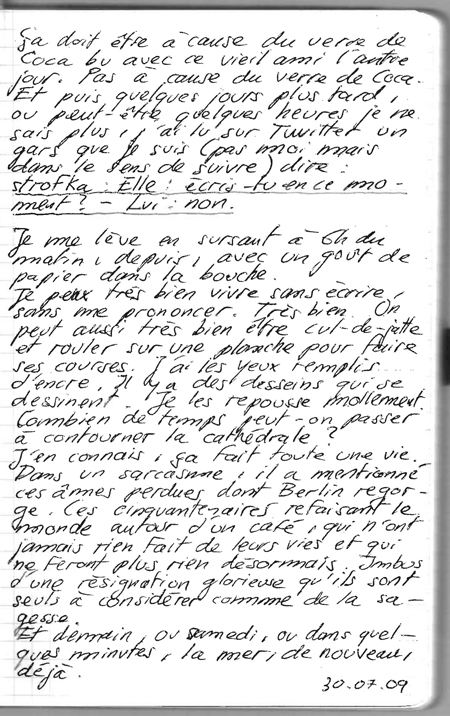 ça doit être à cause du verre de
Coca bu avec ce vieil ami l'autre
jour. Pas à cause du verre de Coca.
Et puis quelques jours plus tard,
ou peut-être quelques heures je ne
sais plus, j'ai lu sur Twitter un
gars que je suis (pas moi mais
dans le sens de suivre) dire :
strofka : Elle : écris-tu en ce mo-
ment ? - Lui : non.
Je me lève en sursaut à 6h du
matin, depuis, avec un goût de
papier dans la bouche.
Je peux très bien vivre sans écrire,
sans me prononcer. Très bien. On
peut aussi très bien être cul-de-jatte
et rouler sur une planche pour faire
ses courses. J'ai les yeux remplis
d'encre. Il y a des desseins qui se
dessinent. Je les repousse mollement.
Combien de temps peut-on passer
à contourner la cathédrale ?
J'en connais, ça fait toute une vie.
Dans un sarcasme, il a mentionné
ces âmes perdues dont Berlin regor-
ge. Ces cinquantenaires refaisant le
monde autour d'un café, qui n'ont
jamais rien fait de leurs vies et qui
ne feront plus rien désormais. Imbus
d'une résignation glorieuse qu'ils sont
seuls à considérer comme de la sa-
gesse.
Et demain, ou samedi, ou dans quel-
ques minutes, la mer, de nouveau,
déjà.
30.07.09